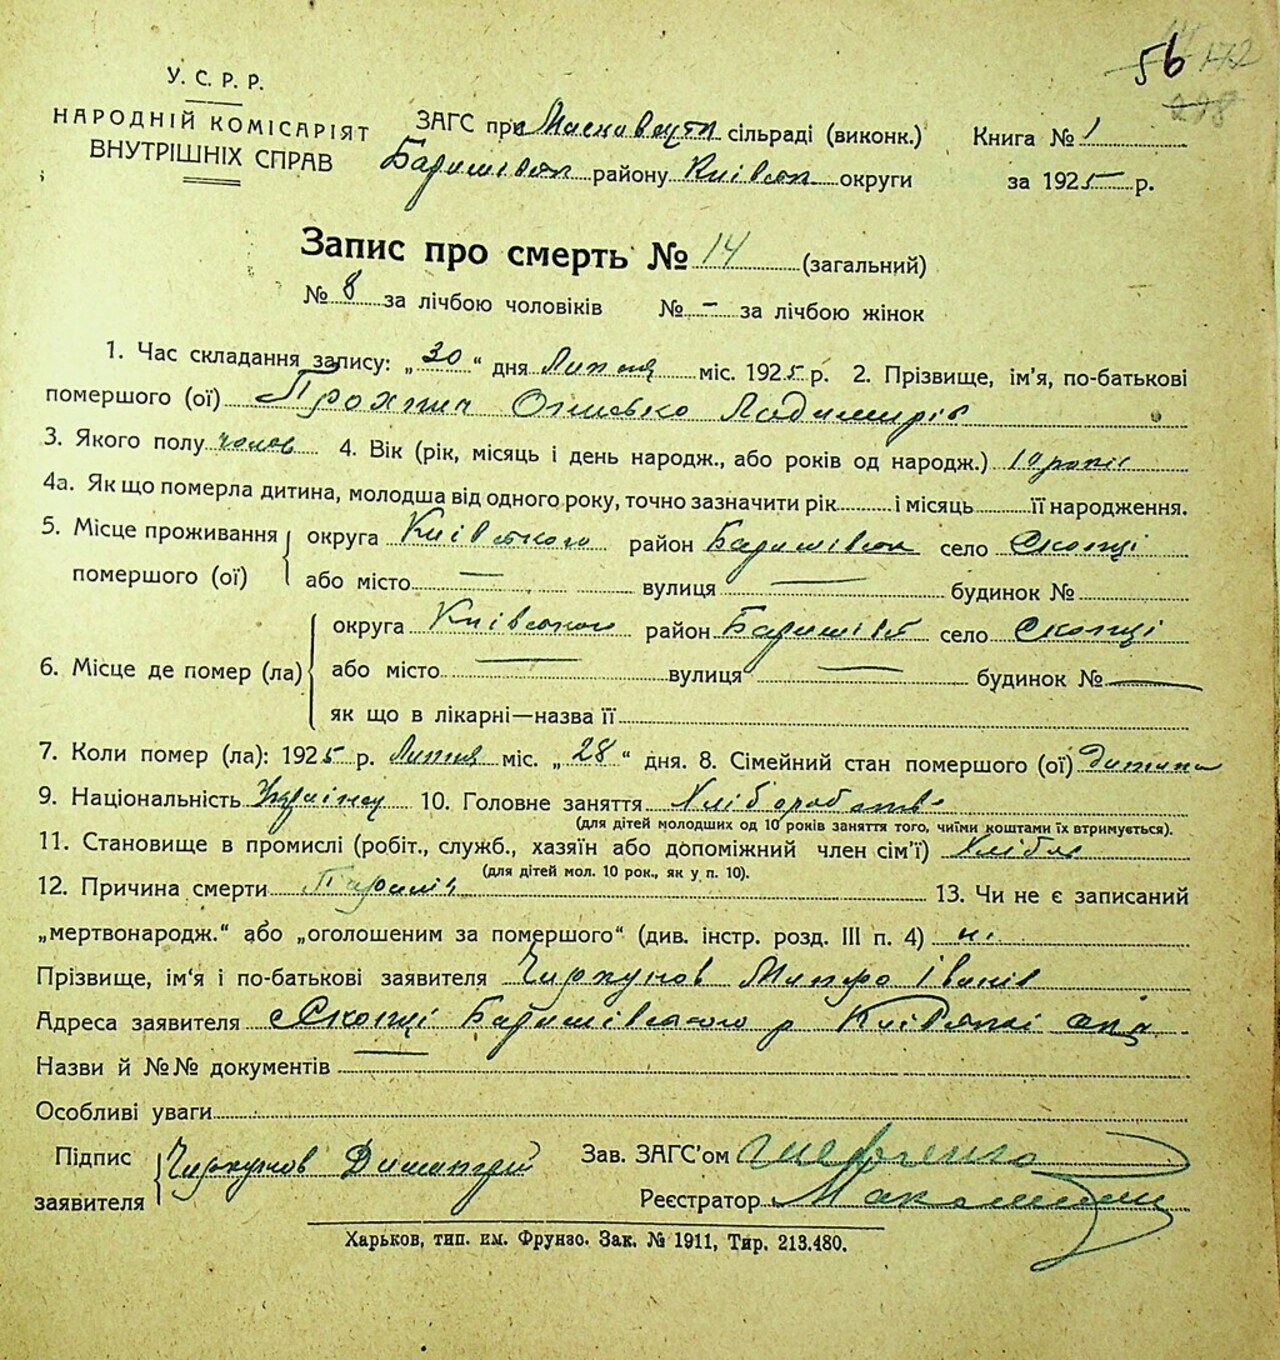 56 172
У. С. Р. Р.
НАРОДНІЙ КОМІСАРІЯТ
ВНУТРІШНІХ СПРАВ
ЗАГС при сільраді (виконк.)
Баришівськ району Київськ округи
Книга № 1
за 1925 р.
Запис про смерть № 14 (загальний)
№ 8 за лічбою чоловіків № – за лічбою жінок
1. Час складання запису: „30“ дня Липня міс. 1925 р. 2. Прізвище, ім'я, по-батькові
помершого (ої)
3. Якого полу чолов 4. Вік (рік, місяць і день народж., або років од народж.) років
4а. Як що померла дитина, молодша від одного року, точно зазначити рік і місяць її народження.
5. Місце проживання помершого (ої) округа Київського район Баришівськ село Скопці
або місто — вулиця — будинок №
6. Місце де помер (ла) округа Київського район Баришівс село Скопці
або місто — вулиця — будинок № —
як що в лікарні—назва її
7. Коли помер (ла): 1925 р. Липня міс. „28“ дня. 8. Сімейний стан помершого (ої) дитина
9. Національність Українец 10. Головне заняття Хліборобство
(для дітей молодших од 10 років заняття того, чиїми коштами їх втримується).
11. Становище в промислі (робіт., служб., хазяїн або допоміжний член сім'ї)
(для дітей мол. 10 рок., як у п. 10).
12. Причина смерти 13. Чи не є записаний
„мертвонародж.“ або „оголошеним за помершого“ (див. інстр. розд. III п. 4) ні
Прізвище, ім'я і по-батькові заявителя Чиркунов Іванів
Адреса заявителя Скопці Баришівського р Київської окр
Назви й №№ документів —
Особливі уваги
Підпис заявителя Чиркунов
Зав. ЗАГС'ом Шевченко
Реєстратор
Харьков, тип. им. Фрунзо. Зак. № 1911, Тир. 213.480.